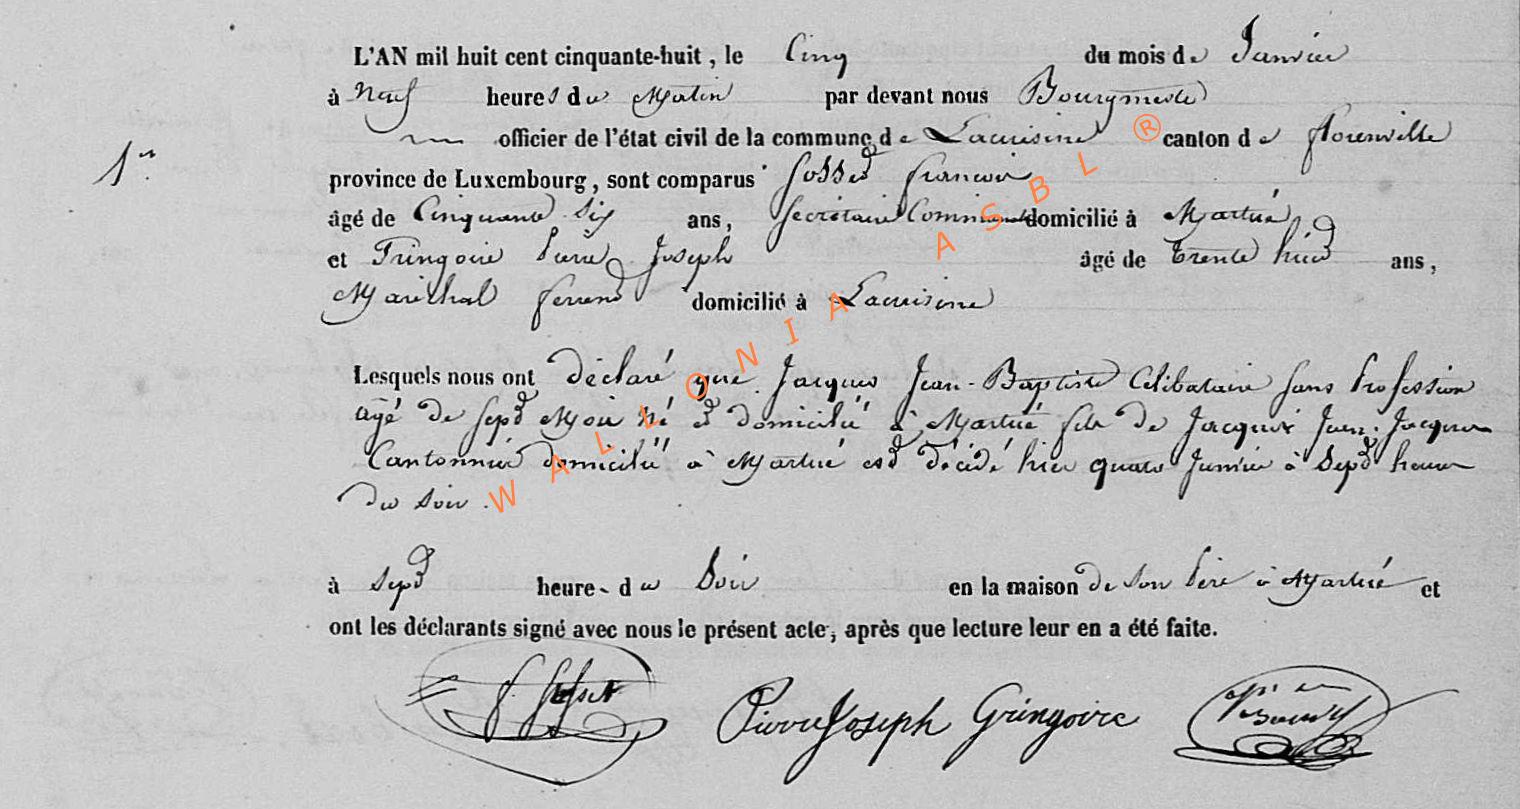 L'AN mil huit cent cinquante-huit, le Cinq du mois de Janvier
à Neuf heures du Matin par devant nous Bourgmestre
officier de l'état civil de la commune de Lacuisine canton de florenville
1er
province de Luxembourg, sont comparus Gosset francois
âgé de Cinquante Six ans, Secrétaire Communal domicilié à Martué
et Gringoire Pierre Joseph âgé de trente huit ans,
Maréchal ferrend domicilié à Lacuisine
Lesquels nous ont déclaré que Jacques Jean-Baptiste Célibataire Sans Profession
agé de Sept Mois né et domicilié à Martué fils de Jacques Jean-Jacques
Cantonnier domicilié à Martué est décédé hier quatre Janvier à Sept heures
du Soir.
à Sept heure du Soir en la maison de Son Père à Martué et
ont les déclarants signé avec nous le présent acte, après que lecture leur en a été faite.
Pierre Joseph Gringoire
WALLONIA ASBL ®